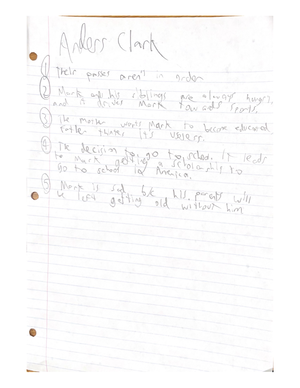 Anders Clark
① Their passes aren't in order
② Mark and his siblings are always hungry,
and drives Mark towards sports.
③ The mother wants Mark to become educated.
Father thinks it's useless.
④ The decision to go to school. It leads
to Mark getting a scholarship to
go to school in America.
⑤ Mark is sad but his parents will
be getting old without him